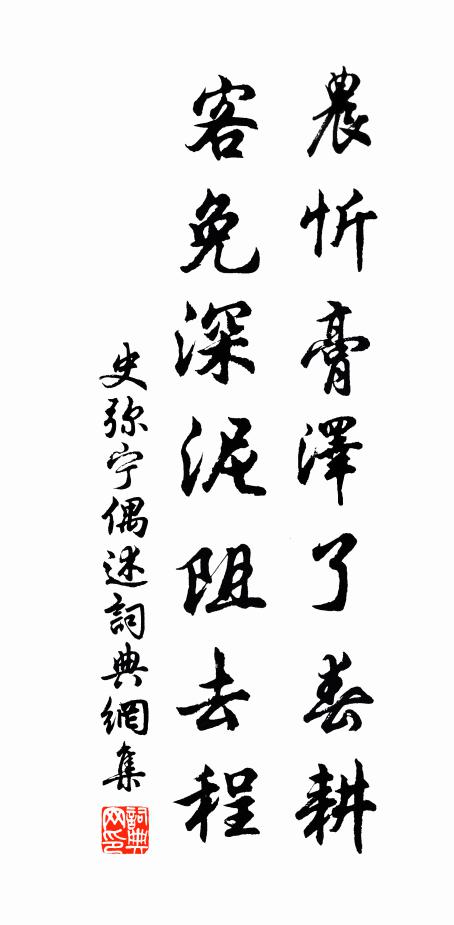 農忻膏澤了春耕
客免深泥阻去程
史弥宁偶述詞典網集
詞典网印